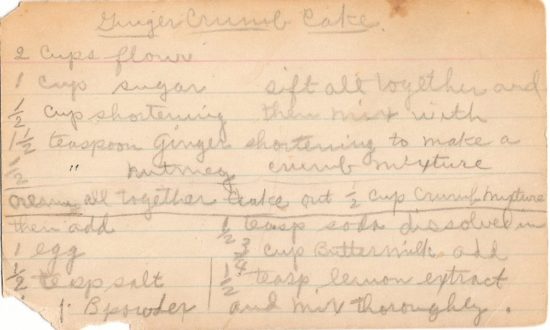 Ginger Crumb Cake.
2 cups flour
1 cup sugar sift all together and
1/2 cup shortening then mix with
1 1/2 teaspoon Ginger shortening to make a
1/2 " nutmeg crumb mixture
cream all together take out 1/2 cup Crumb mixture
then add 1/2 teasp soda dissolved in
1 egg 3/4 cup Buttermilk add
1/2 teasp salt 1/2 teasp lemon extract
1 Bpowder and mix thoroughly.